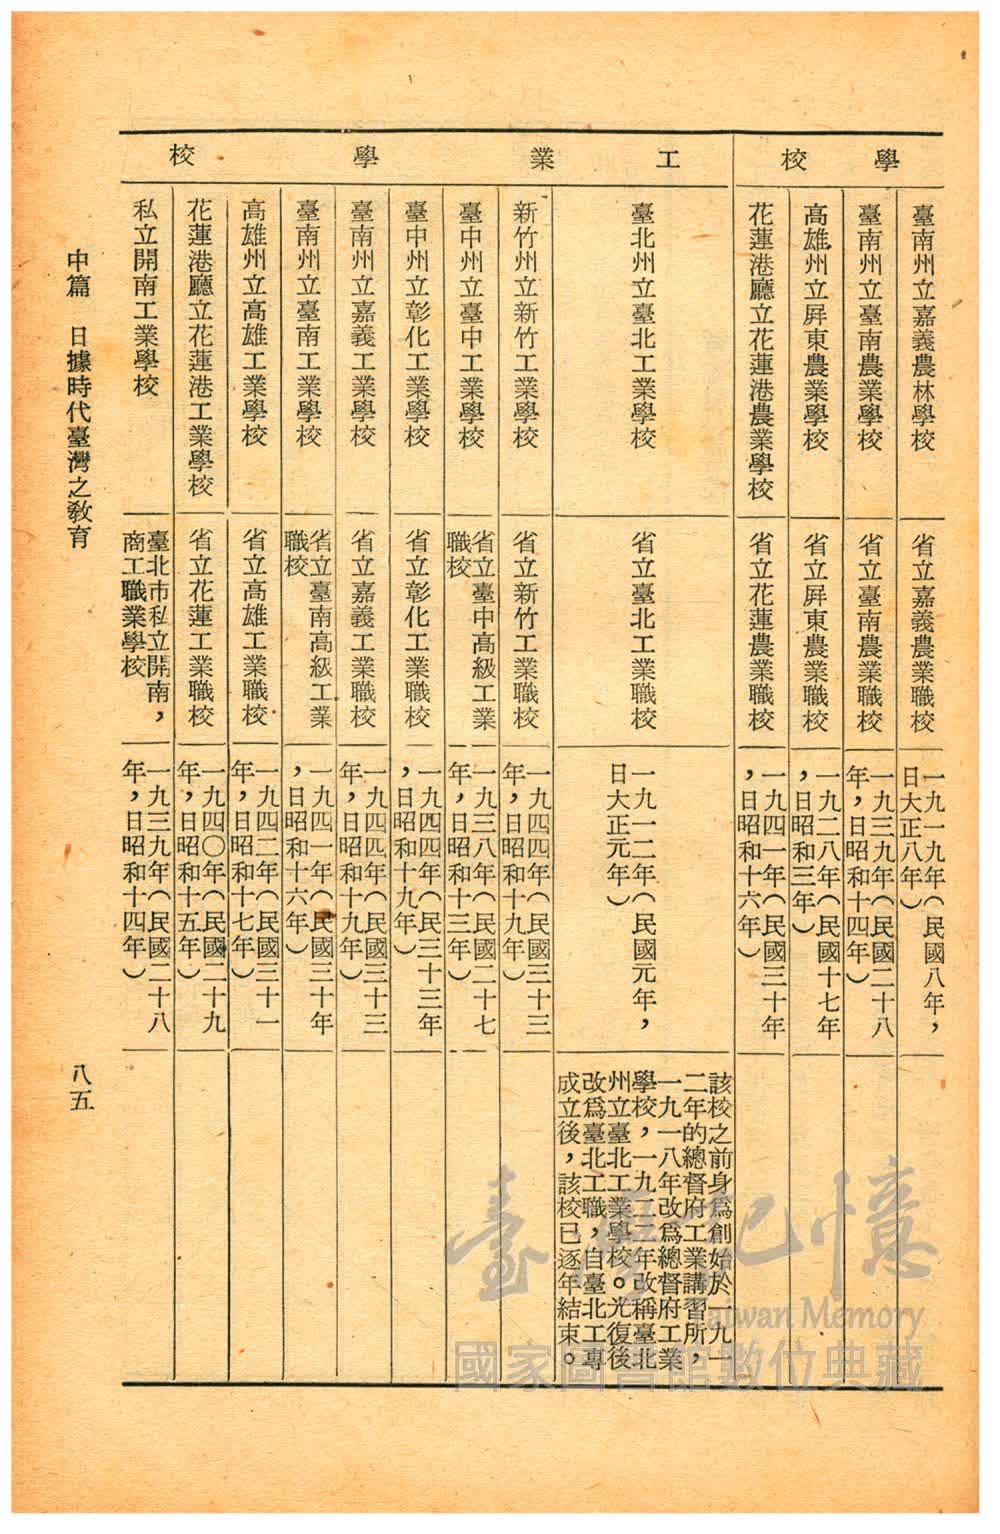 學校
臺南州立嘉義農林學校
省立嘉義農業職校
一九一九年(民國八年，
日大正八年)
臺南州立臺南農業學校
省立臺南農業職校
一九三九年(民國二十八
年，日昭和十四年)
高雄州立屏東農業學校
省立屏東農業職校
一九二八年(民國十七年
，日昭和三年)
花蓮港廳立花蓮港農業學校
省立花蓮農業職校
一九四一年(民國三十年
，日昭和十六年)
工業學校
臺北州立臺北工業學校
省立臺北工業職校
一九一二年(民國元年，
日大正元年)
該校之前身爲創始於一九一
二年的總督府工業講習所，
一九一八年改爲總督府工業
學校，一九二二年改稱臺北
州立臺北工業學校。光復後
改爲臺北工職，自臺北工專
成立後，該校已逐年結束。
新竹州立新竹工業學校
省立新竹工業職校
一九四四年(民國三十三
年，日昭和十九年)
臺中州立臺中工業學校
省立臺中高級工業
職校
一九三八年(民國二十七
年，日昭和十三年)
臺中州立彰化工業學校
省立彰化工業職校
一九四四年(民三十三年
，日昭和十九年)
臺南州立嘉義工業學校
省立嘉義工業職校
一九四四年(民國三十三
年，日昭和十九年)
臺南州立臺南工業學校
省立臺南高級工業
職校
一九四一年(民國三十年
，日昭和十六年)
高雄州立高雄工業學校
省立高雄工業職校
一九四二年(民國三十一
年，日昭和十七年)
花蓮港廳立花蓮港工業學校
省立花蓮工業職校
一九四〇年(民國二十九
年，日昭和十五年)
私立開南工業學校
臺北市私立開南，
商工職業學校
一九三九年(民國二十八
年，日昭和十四年)
中篇　日據時代臺灣之敎育
八五
臺灣記憶
Taiwan Memory
國家圖書館數位典藏